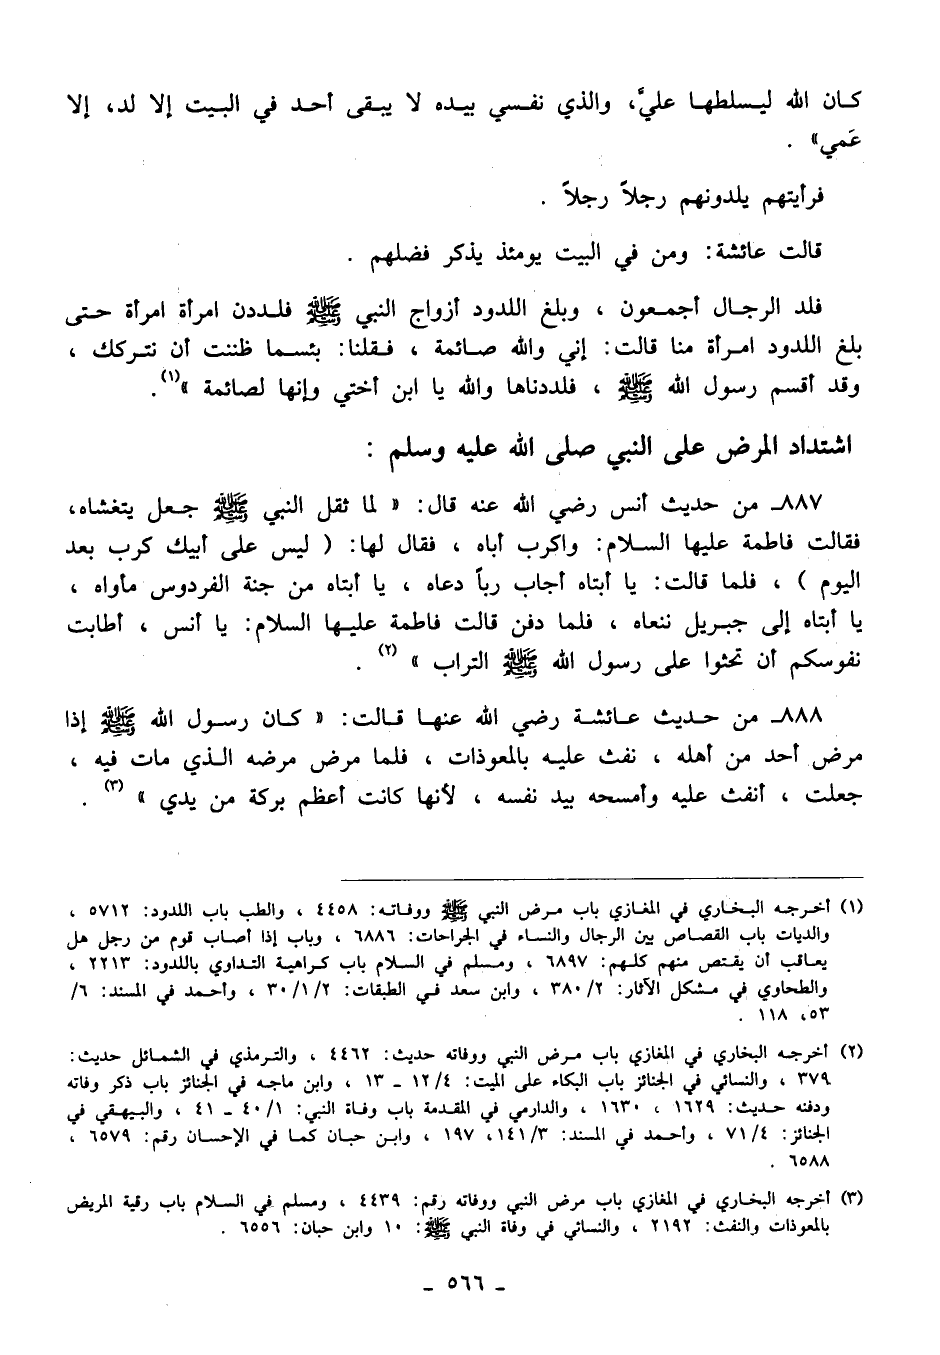 كان الله ليسلطها عليَّ، والذي نفسي بيده لا يبقى أحد في البيت إلا لد، إلا
عَمي» .
فرأيتهم يلدونهم رجلاً رجلاً .
قالت عائشة: ومن في البيت يومئذ يذكر فضلهم .
فلد الرجال أجمعون ، وبلغ اللدود أزواج النبي ﷺ فلددن امرأة امرأة حتى
بلغ اللدود امرأة منا قالت: إني والله صائمة ، فقلنا: بئسما ظننت أن نتركك ،
وقد أقسم رسول الله ﷺ ، فلددناها والله يا ابن أختي وإنها لصائمة »(١).
اشتداد المرض على النبي صلى الله عليه وسلم :
٨٨٧ـ من حديث أنس رضي الله عنه قال: « لما ثقل النبي ﷺ جعل يتغشاه،
فقالت فاطمة عليها السلام: واكرب أباه ، فقال لها: ( ليس على أبيك كرب بعد
اليوم ) ، فلما قالت: يا أبتاه أجاب رباً دعاه ، يا أبتاه من جنة الفردوس مأواه ،
يا أبتاه إلى جبريل ننعاه ، فلما دفن قالت فاطمة عليها السلام: يا أنس ، أطابت
نفوسكم أن تحثوا على رسول الله ﷺ التراب » (٢) .
٨٨٨ـ من حديث عائشة رضي الله عنها قالت: « كان رسول الله ﷺ إذا
مرض أحد من أهله ، نفث عليه بالمعوذات ، فلما مرض مرضه الذي مات فيه ،
جعلت ، أنفث عليه وأمسحه بيد نفسه ، لأنها كانت أعظم بركة من يدي » (٣) .
(١) أخرجه البخاري في المغازي باب مرض النبي ﷺ ووفاته: ٤٤٥٨ ، والطب باب اللدود: ٥٧١٢ ،
والديات باب القصاص بين الرجال والنساء في الجراحات: ٦٨٨٦ ، وباب إذا أصاب قوم من رجل هل
يعاقب أن يقتص منهم كلهم: ٦٨٩٧ ، ومسلم في السلام باب كراهية التداوي باللدود: ٢٢١٣ ،
والطحاوي في مشكل الآثار: ٣٨٠/٢ ، وابن سعد في الطبقات: ٣٠/١/٢ ، وأحمد في المسند: ٦/
٥٣، ١١٨ .
(٢) أخرجه البخاري في المغازي باب مرض النبي ووفاته حديث: ٤٤٦٢ ، والترمذي في الشمائل حديث:
٣٧٩ ، والنسائي في الجنائز باب البكاء على الميت: ١٢/٤ ـ ١٣ ، وابن ماجه في الجنائز باب ذكر وفاته
ودفنه حديث: ١٦٢٩ ، ١٦٣٠ ، والدارمي في المقدمة باب وفاة النبي: ٤٠/١ ـ ٤١ ، والبيهقي في
الجنائز: ٧١/٤ ، وأحمد في المسند: ١٤١/٣، ١٩٧ ، وابن حبان كما في الإحسان رقم: ٦٥٧٩ ،
٦٥٨٨ .
(٣) أخرجه البخاري في المغازي باب مرض النبي ووفاته رقم: ٤٤٣٩ ، ومسلم في السلام باب رقية المريض
بالمعوذات والنفث: ٢١٩٢ ، والنسائي في وفاة النبي ﷺ: ١٠ وابن حبان: ٦٥٥٦ .
ـ ٥٦٦ ـ